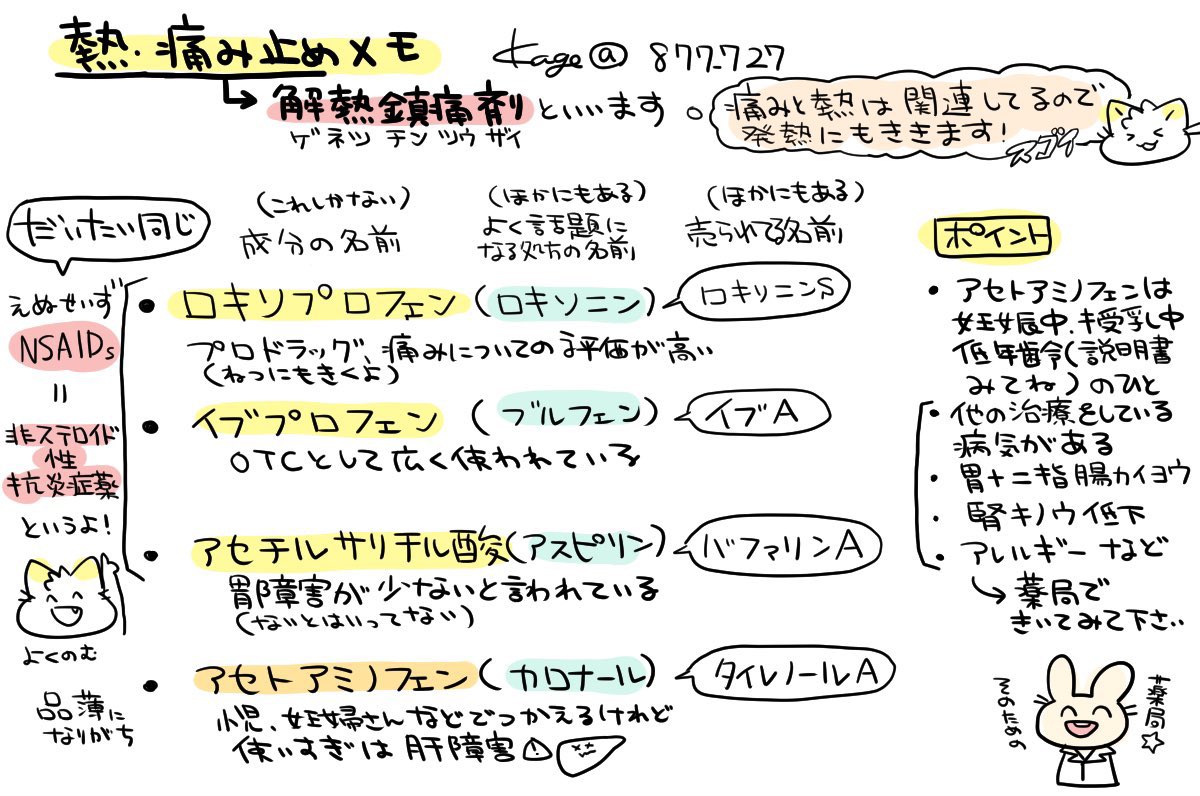 熱・痛み止めメモ
kage@ 877_727
解熱鎮痛剤といいます
ゲネツ チン ツウ ザイ
痛みと熱は関連してるので
発熱にもききます!
スゴイ
だいたい同じ
(これしかない)
成分の名前
(ほかにもある)
よく話題に
なる処方の名前
(ほかにもある)
売られてる名前
えぬせいず
NSAIDs
=
非ステロイド
性
抗炎症薬
というよ!
よくのむ
品薄に
なりがち
・ロキソプロフェン(ロキソニン) ロキソニンS
プロドラッグ、痛みについての評価が高い
(ねつにもきくよ)
・イブプロフェン(ブルフェン) イブA
OTCとして広く使われている
・アセチルサリチル酸(アスピリン) バファリンA
胃障害が少ないと言われている
(ないとはいってない)
・アセトアミノフェン(カロナール) タイレノールA
小児、妊婦さんなどでつかえるけれど
使いすぎは肝障害⚠
ポイント
・アセトアミノフェンは
妊娠中、授乳中
低年齢(説明書
みてね)のひと
・他の治療をしている
病気がある
・胃十二指腸カイヨウ
・腎キノウ低下
・アレルギーなど
→薬局で
きいてみて下さい
そのための
薬局☆